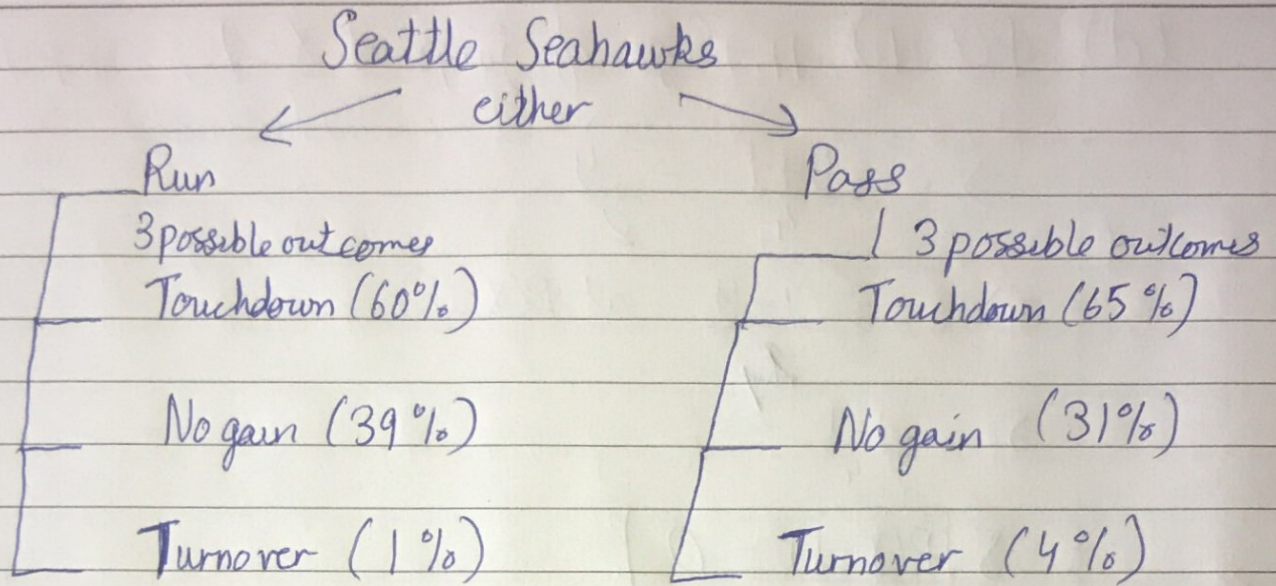 Seattle Seahawks
either
Run
3 possible outcomes
Touchdown (60%)
No gain (39%)
Turnover (1%)
Pass
3 possible outcomes
Touchdown (65%)
No gain (31%)
Turnover (4%)